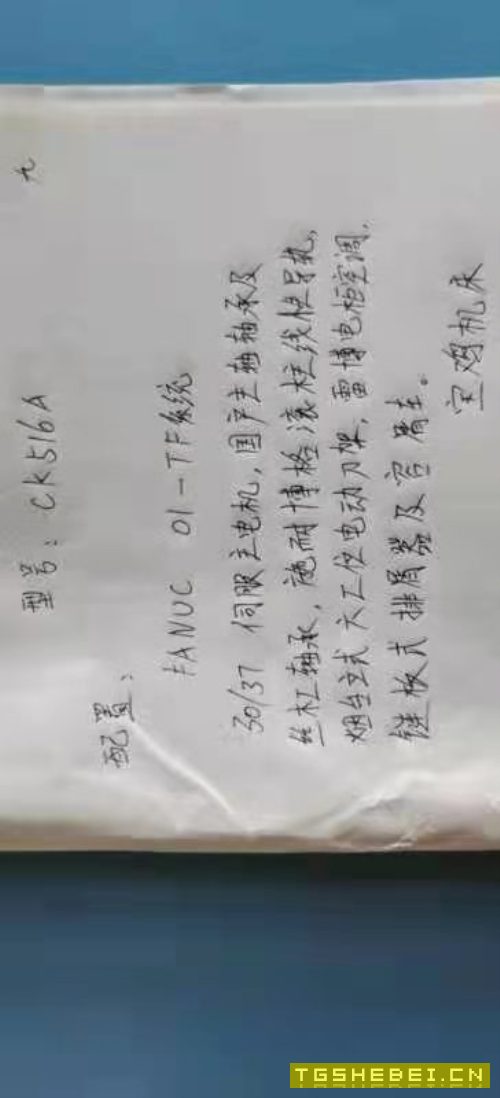 九
型号：CK516A
配置：
FANUC 01-TF系统
30/37 伺服主电机，国产主轴轴承及
丝杠轴承，施耐博格滚柱线性导轨，
烟台立式六工位电动刀架，雷博电柜空调，
链板式排屑器及容屑车。
宝鸡机床
TGSHEBEI.CN